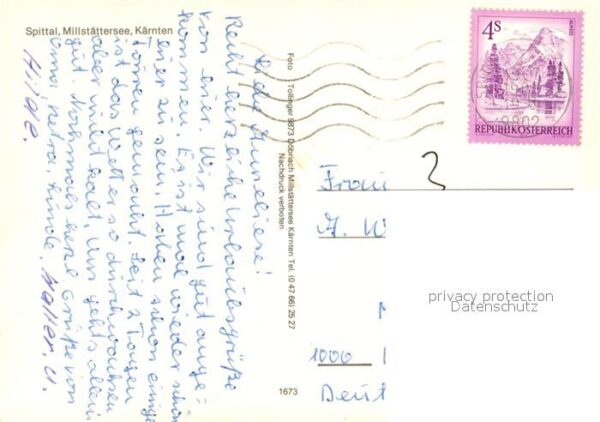 Spittal, Millstättersee, Kärnten
Liebe Anneliese!
Recht herzliche Urlaubsgrüße
von hier. Wir sind gut ange-
kommen. Es ist mal wieder schön
hier zu sein. Haben schon einige
Touren gemacht. Seit 2 Tagen
ist das Wetter so durchwachsen
aber nicht kalt, uns gehts allen
gut. Nochmals herzl. Grüße von
Petra, Walter, u.
Hilde.
Foto Tollinger 9873 Döbriach Millstättersee Kärnten Tel. (0 47 66) 25 27
Nachdruck verboten
1673
4S
ALMSEE
REPUBLIK ÖSTERREICH
9802
Frau
A. W
1000
Deut
privacy protection
Datenschutz